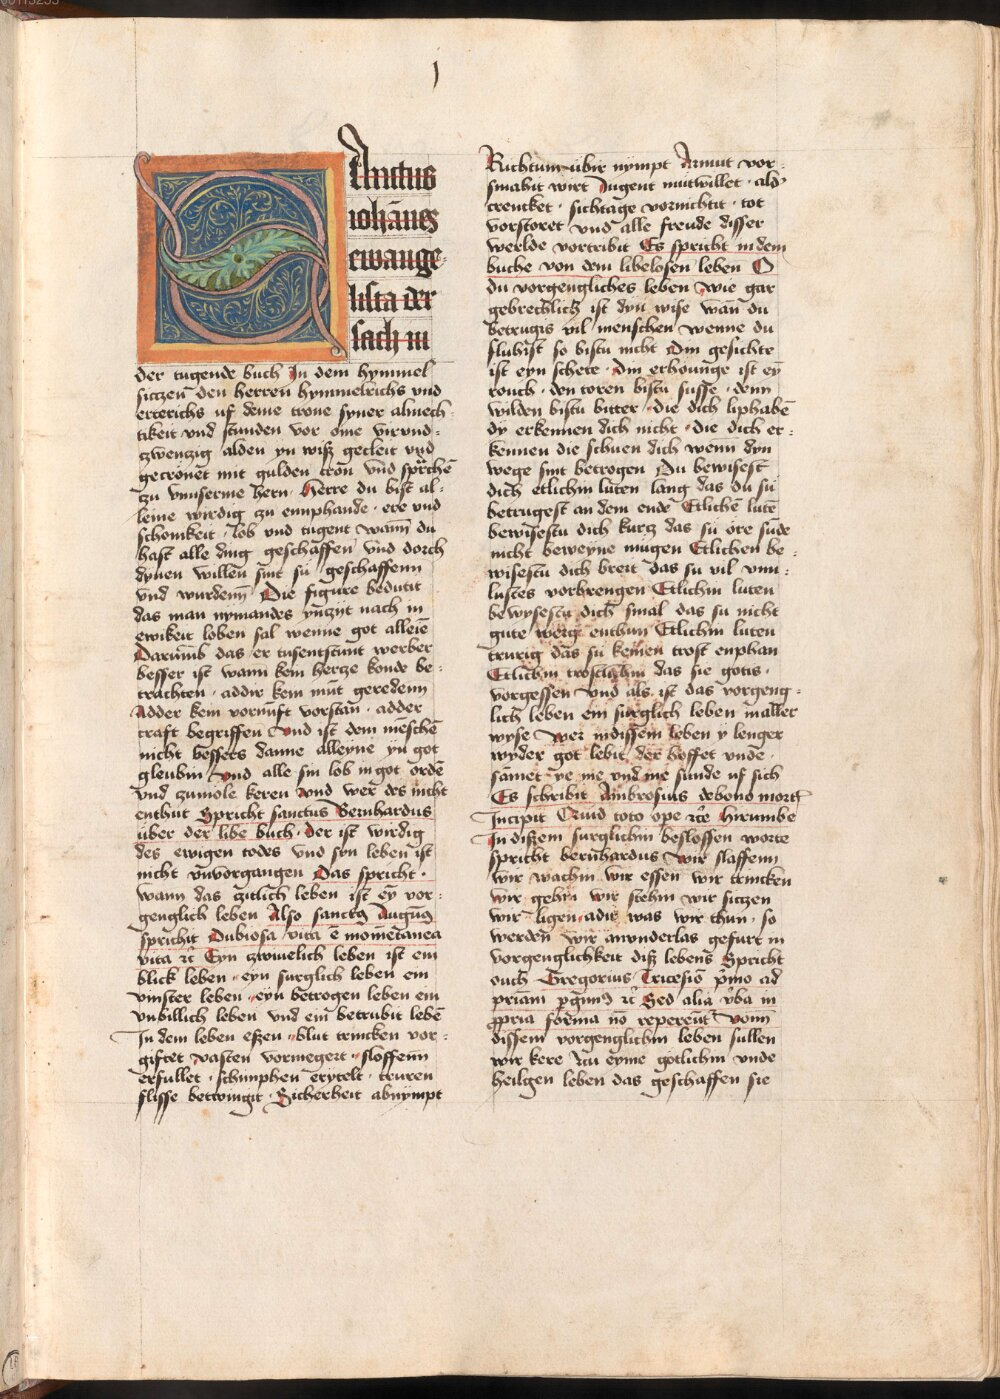 1
SAnctus
iohānes
ewange-
lista der
sach in
der tugende buch In dem hymmel
siczen den herren hymmelrichs vnd
erterichs uf deme trone syner almech-
tikeit vnd stunden vor ome virvnd-
zwenzig alden yn wisz gecleit vnd
gecronet mit gulden cron vnd sprchē
zu vnnserme hern · Herre du bist al-
leine wirdig zu ennphande · ere vnd
schonikeit · lob vnd tugent wann du
hast alle ding geschaffen vnd dorch
dynen willen sint su geschaffenn
vnd wurdenn Die figure bedutit
das man nymandes ynzijt nach in
ewikeit loben sal wenne got alleiē
Darumb das er tusentstunt werber
besser ist wann kem hercze konde be-
trachten · addir kem mut geredenn
Adder kem vornūft vorstan · adder
craft begriffen Vnd ist dem mēschē
nicht bessers danne alleyne yn got
gleubin Vnd alle sin lob in got ordē
vnd zumole keren Vnd wer des nicht
enthut Spricht sanctus Bernhardus
über der libe buch · der ist wirdig
des ewigen todes vnd syn leben ist
nicht vnvorgangen Das spricht ·
wann das zitlich leben ist ey vor-
genglich leben Also sanctꝰ Augꝰnꝰ
sprichit Dubiosa vita ē momētanea
vita ꝛc Eyn zwiuelich leben ist ein
blick leben · eyn surglich leben ein
vinster leben · eyn betrogen leben ein
vnbillich leben vnd ein betrubit lebē
In dem leben eszen · blut trincken vor-
giftet vasten vormegert · sloffenn
erfullet · schimphen erytelt · truren
flisse betwingit · Sicherheit abnympt
Richtum übir nympt Armut vor-
smahit wirt Iugent muttwillet · ald'
crencket · sichtage vornichtit · tot
vorstoret vnd alle freude disser
werlde vortribit Es spricht in dem
buche von dem libelosen leben O
du vorgengliches leben wie gar
gebrechlich ist dyn wise wan du
betrugis vil menschen wenne du
fluhist so bistu nicht Din gesichte
ist eyn schete · Din erhounge ist ey
rouch · den toren bistu susse · denn
wilden bistu bitter · die dich liphabē
dy erkennen dich nicht · die dich er-
kennen die schuen dich wenn dyn
wege sint betrogen Du bewisest
dich etlichin luten lang das du su
betrugest an dem ende Etlichē lutē
bewisestu dich kurcz das su ore sūde
nicht beweyne mugen Etlichen be-
wisestu dich breit das su vil vnn-
lustes vorbrengen Etlichin luten
bewysestu dich smal das su nicht
gute werg enthun Etlichin luten
trurig das su keinen trost enphan
Etlichin trostlichin das sie gotis ·
vorgessen Vnd als ist das vorgeng-
lich leben ein surglich leben in aller
wyse Wer indissem leben y lenger
wyder got lebit der hoffet vnde
samet ye me vnd me sunde uf sich
Es schribit Ambrosius debono mortꝭ
Incipit Cruid toto ope ꝛc hirumbe
In diszem surglichin beslossen worte
spricht bernhardus Wir slaffenn
wir wachin wir essen wir trincken
wir gehin wir stehin wir siczen
wir ligen adir was wir thun · so
werden wir anvnderlas gefurt in
vorgenglichkeit disz lebens Spricht
ouch Gregorius Tricesiō pͥmo ad
priam pꝯgmꝰ ꝛc Sed alia vͥba in
ꝓpria forma nō reperent Vonn
dissem vorgenglichin leben sullen
wir kere zcu eyme gotlichin vnde
heilgen leben das geschaffen sie